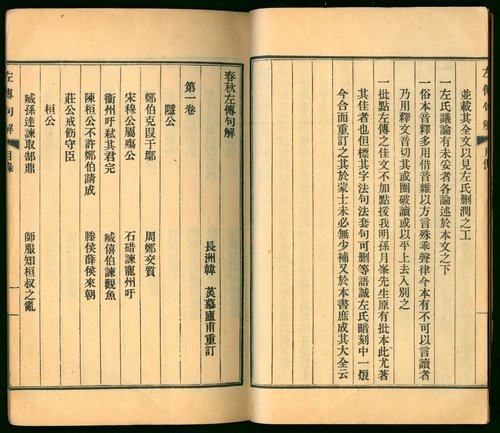 左傳句解
並載其全文以見左氏刪潤之工
一左氏議論有未妥者各論述於本文之下
一俗本音釋多用借音雜以方言殊乖聲律今本有不可以言讀者
乃用釋文音切其或圈破讀或以平上去入別之
一批點左傳之佳文不加點援我明孫月峯先生原有批本此尤著
其佳者也但標其字法句法套句可刪等語誠左氏暗刻中一燬
今合而重訂之其於蒙士未必無少補又於本書庶成其大全云
春秋左傳句解
長洲韓 菼慕廬甫重訂
第一卷
隱公
鄭伯克段于鄢 周鄭交質
宋穆公屬殤公 石碏諫寵州吁
衞州吁弒其君完 臧僖伯諫觀魚
陳桓公不許鄭伯請成 滕侯薛侯來朝
莊公戒飭守臣
桓公
臧孫達諫取郜鼎 師服知桓叔之亂
左傳句解 目錄 一